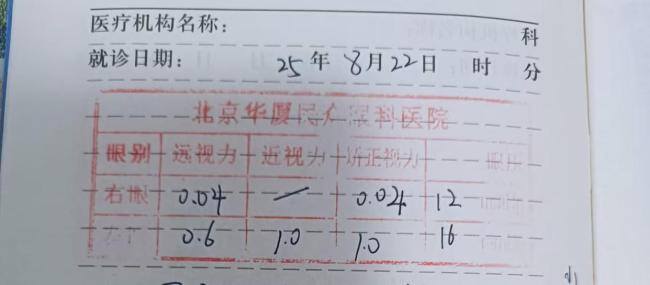 医疗机构名称： 科
就诊日期： 25年8月22日 时 分
北京华厦民众眼科医院
眼别 远视力 近视力 矫正视力 眼压
右眼 0.04 / 0.04 12
左 0.6 1.0 1.0 16